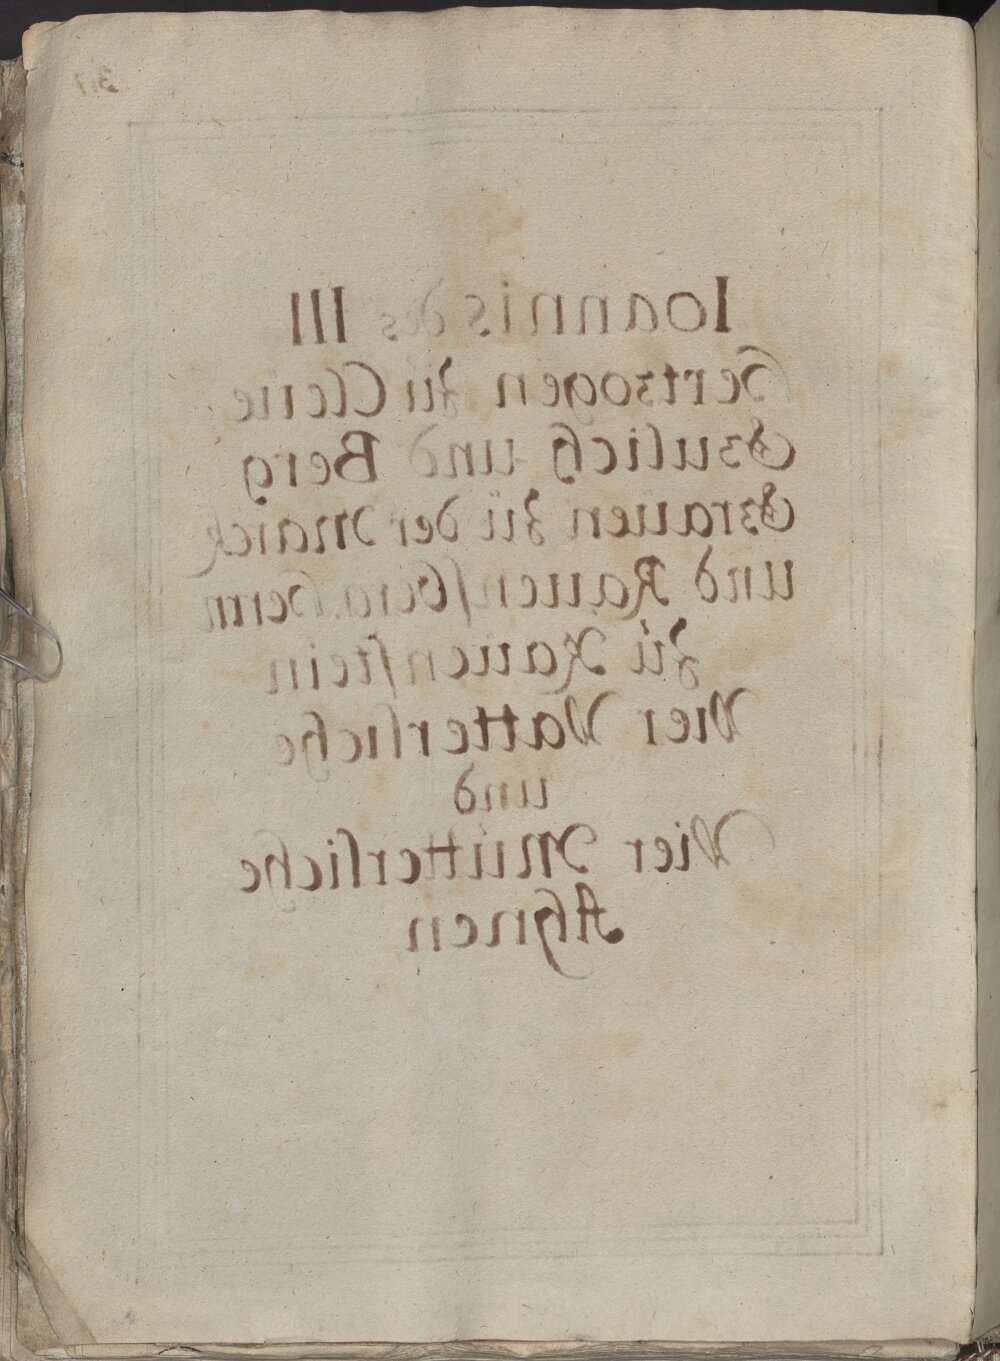 Ioannis des III
Hertzogen zü Cleüe
Gulich und Berg
Grauen zü der Marck
und Rauensberg Herrn
zü Rauenstein
Vier Vatterliche
und
Vier Mütterliche
Ahnen